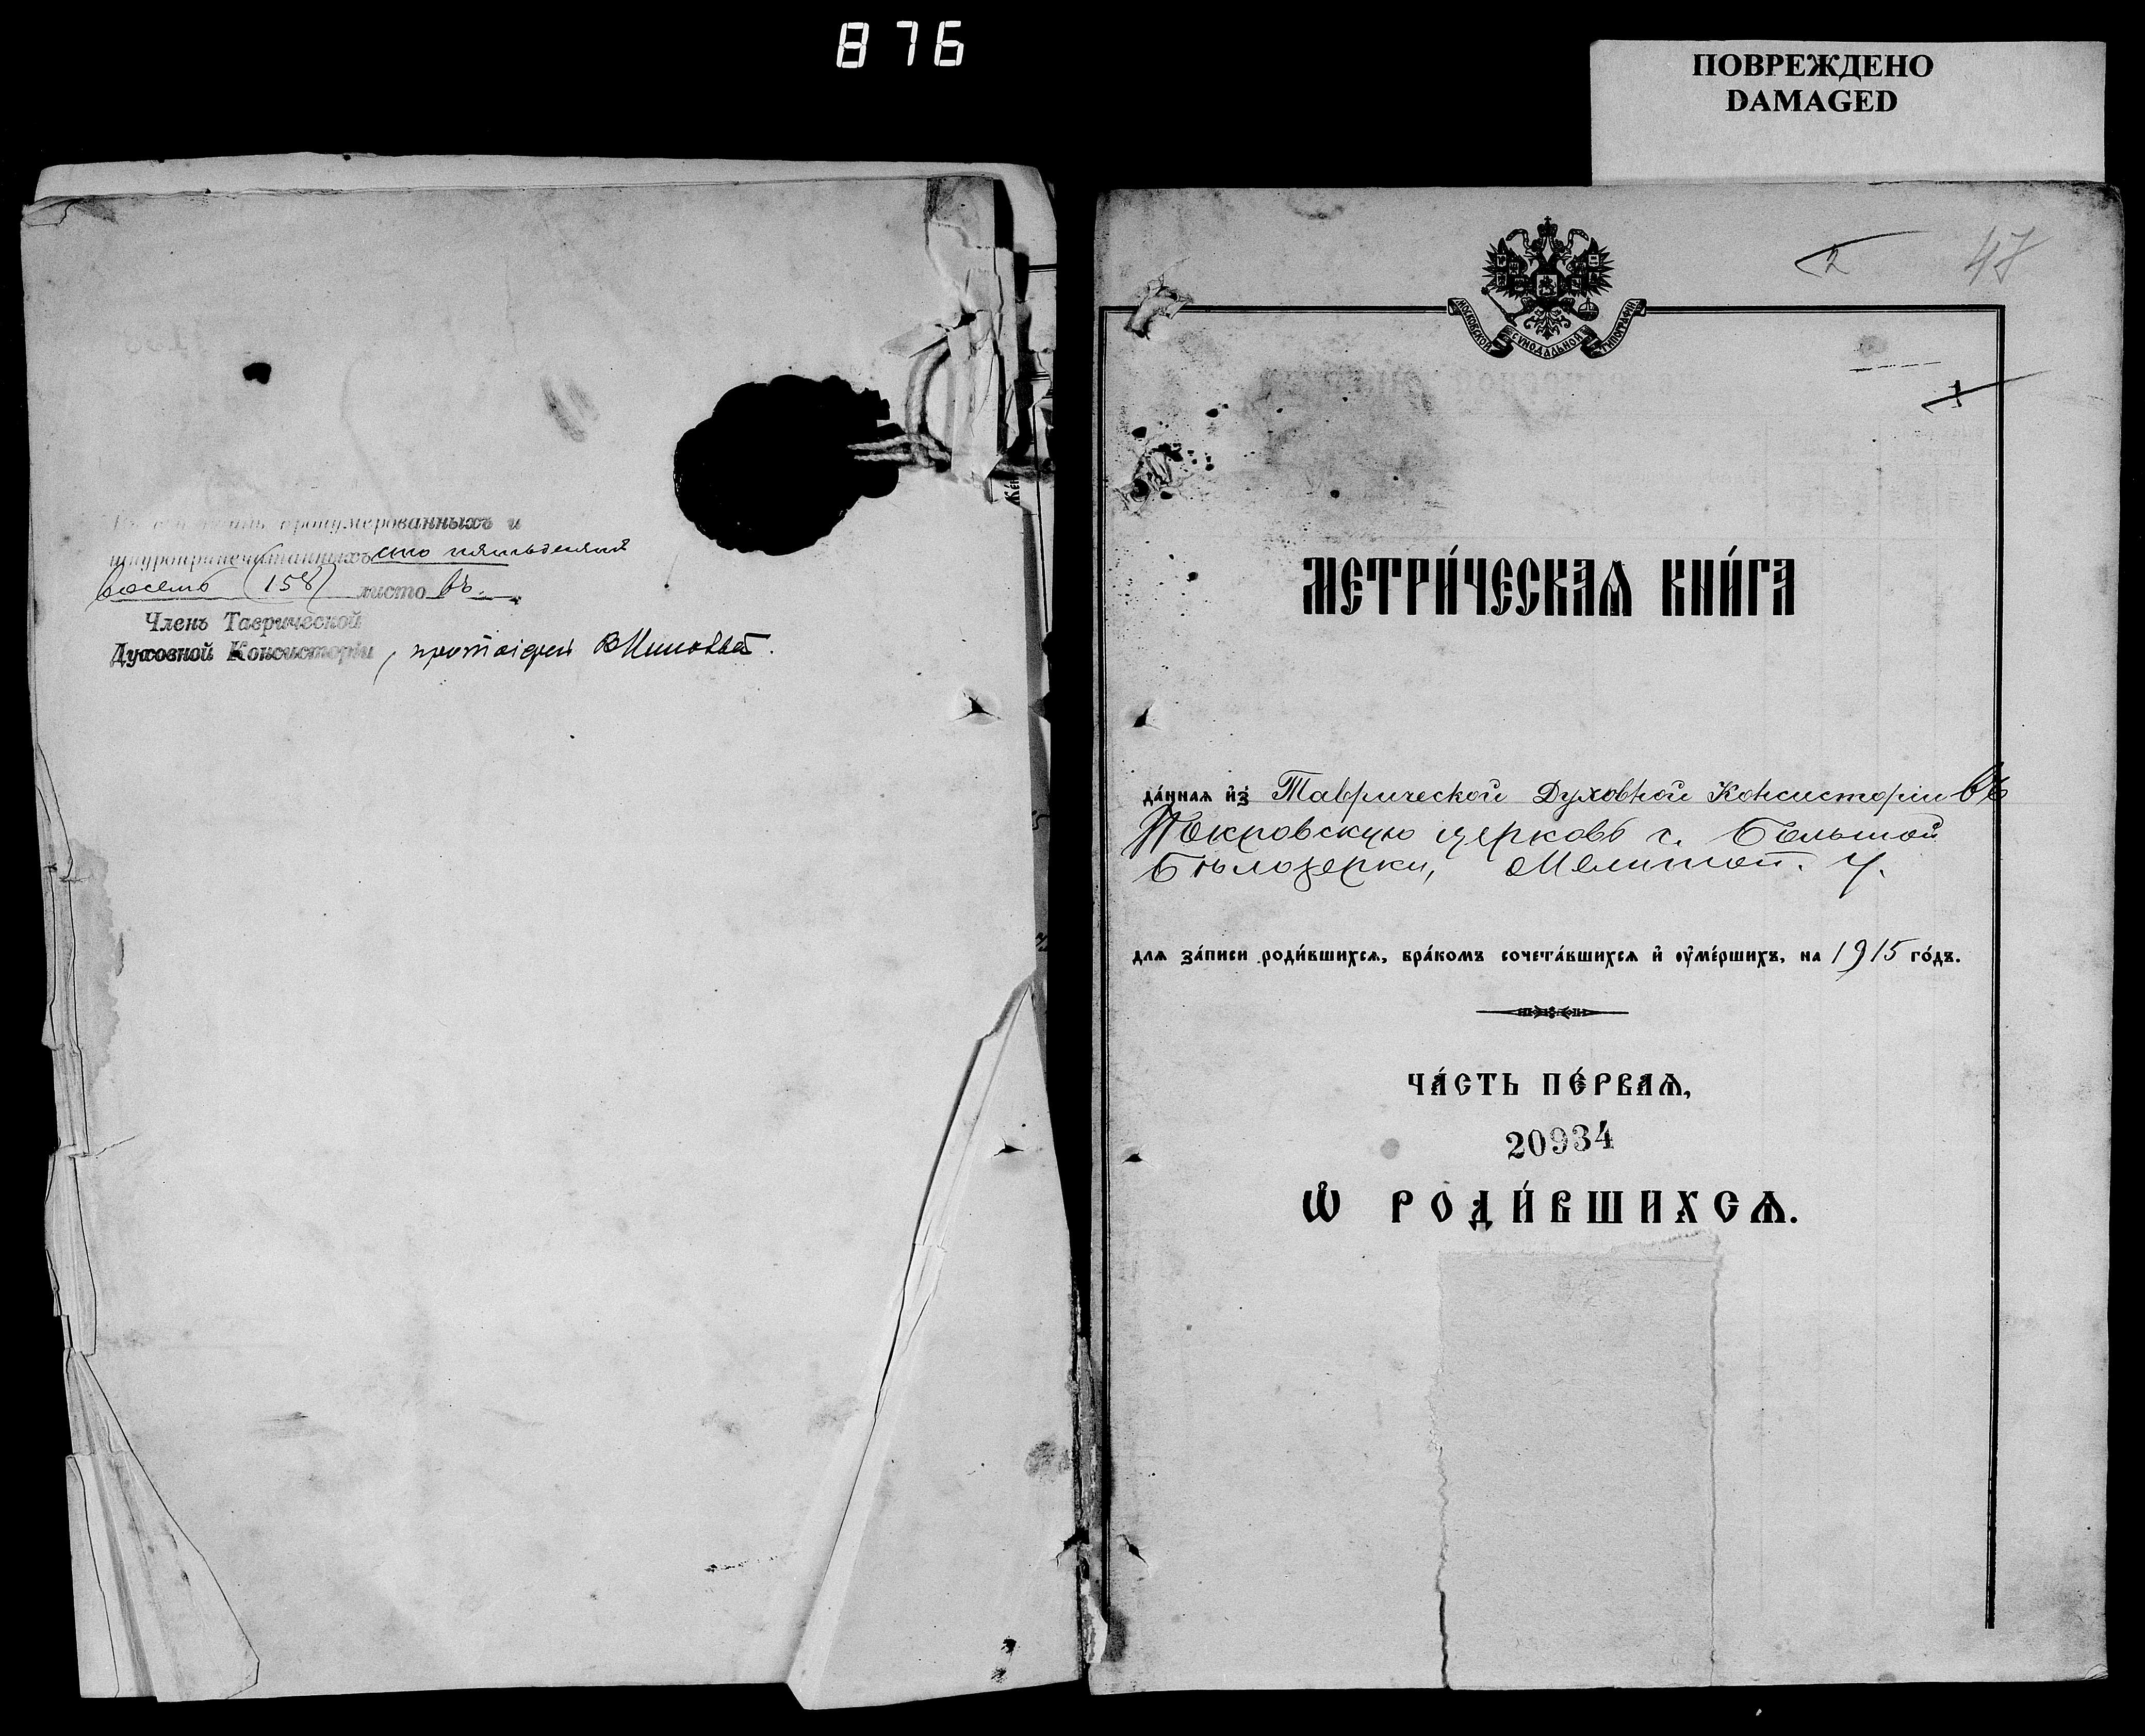 876
ПОВРЕЖДЕНО
DAMAGED
пронумерованныхъ и
шнуроприпечатанныхъ сто пятьдесятъ
восемь (158) листовъ.
Членъ Таврической
Духовной Консисторіи, протоіерей
2
47
МОСКОВСКОЙ СѴНОДАЛЬНОЙ ТИПОГРАФІИ
МЕТРИ́ЧЕСКАѦ КНИ́ГА
да́ннаѧ и҆з̾ Таврической Духовной Консисторіи въ
Покровскую церковь с. Большой
Бѣлозерки, Мелитоп. у.
длѧ за́писи роди́вшихсѧ, бра́комъ сочета́вшихсѧ и҆ оу҆ме́ршихъ, на 1915 го́дъ.
ЧА́СТЬ ПЕ́РВАѦ,
20934
Ѡ҆ РОДИ́ВШИХСѦ.